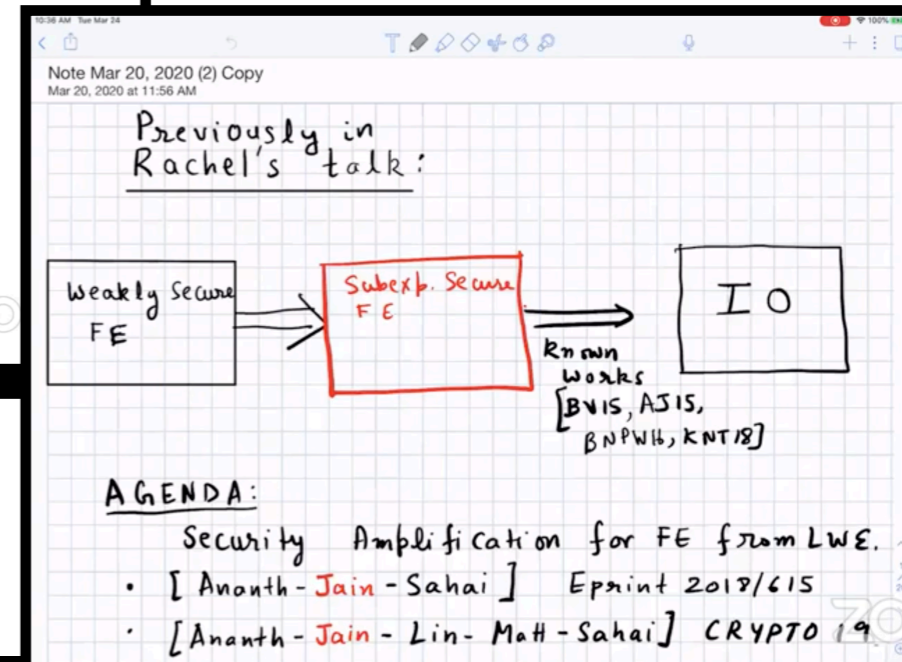 10:36 AM Tue Mar 24
100%
T
Note Mar 20, 2020 (2) Copy
Mar 20, 2020 at 11:56 AM
Previously in
Rachel's talk:
Weakly Secure
FE
Subexp. Secure
FE
IO
Known
works
[BV15, AJ15,
BNPW16, KNT18]
AGENDA:
Security Amplification for FE from LWE.
• [Ananth-Jain-Sahai] Eprint 2018/615
• [Ananth-Jain-Lin-Matt-Sahai] CRYPTO 19
ZO